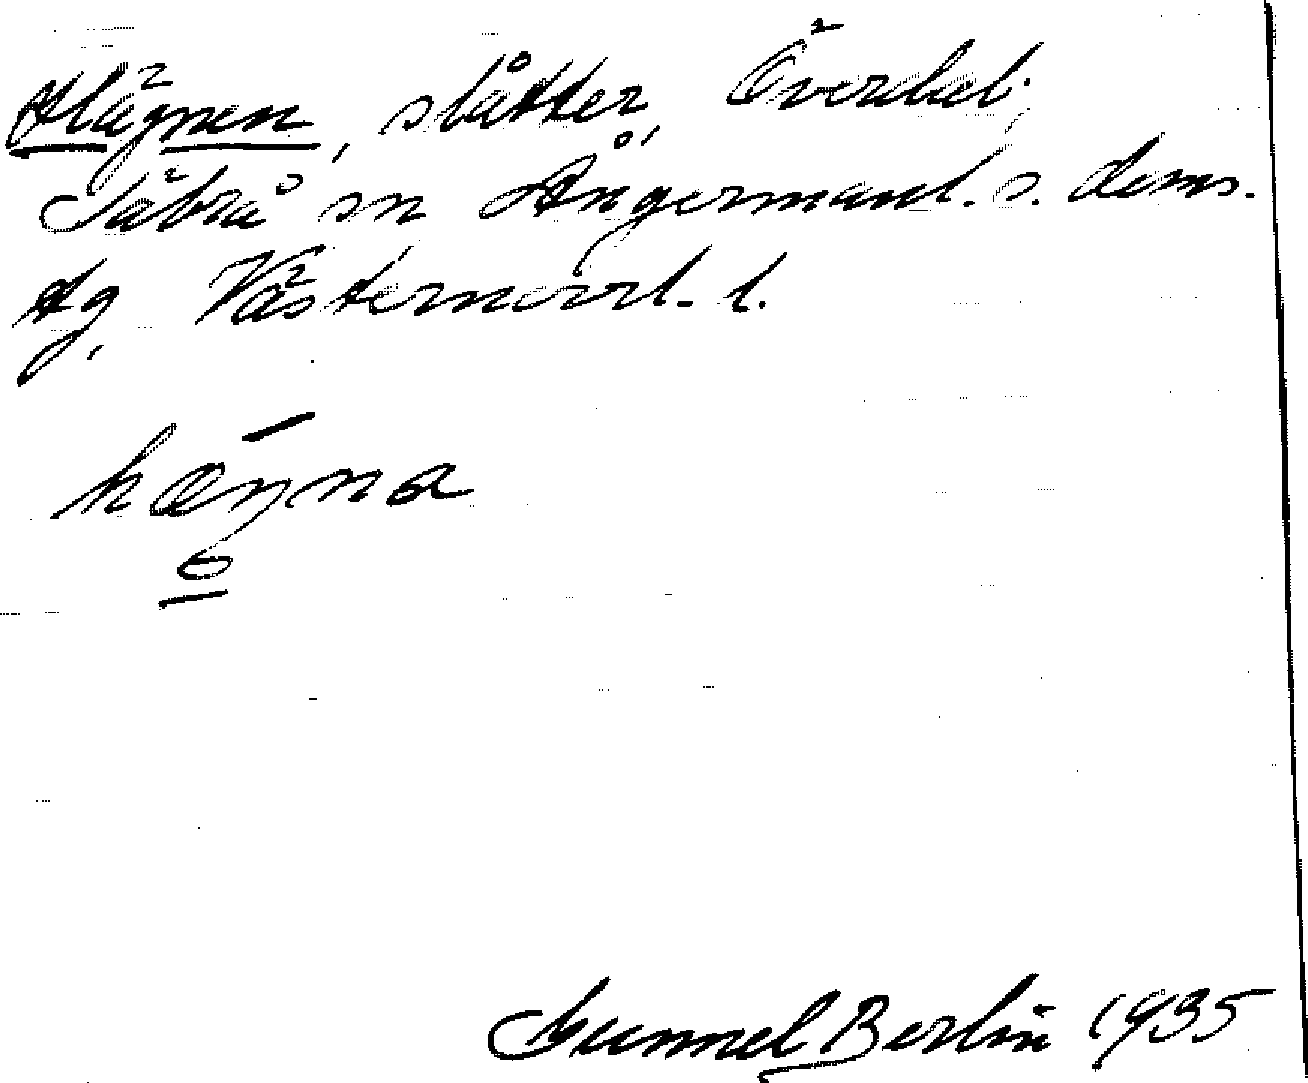 Hägnen, slåtter, Överbal;
Säbrå sn Ångermanl. s. doms.
tg, Västernorrl. l.
hæŋna
Gunnel Berlin 1935